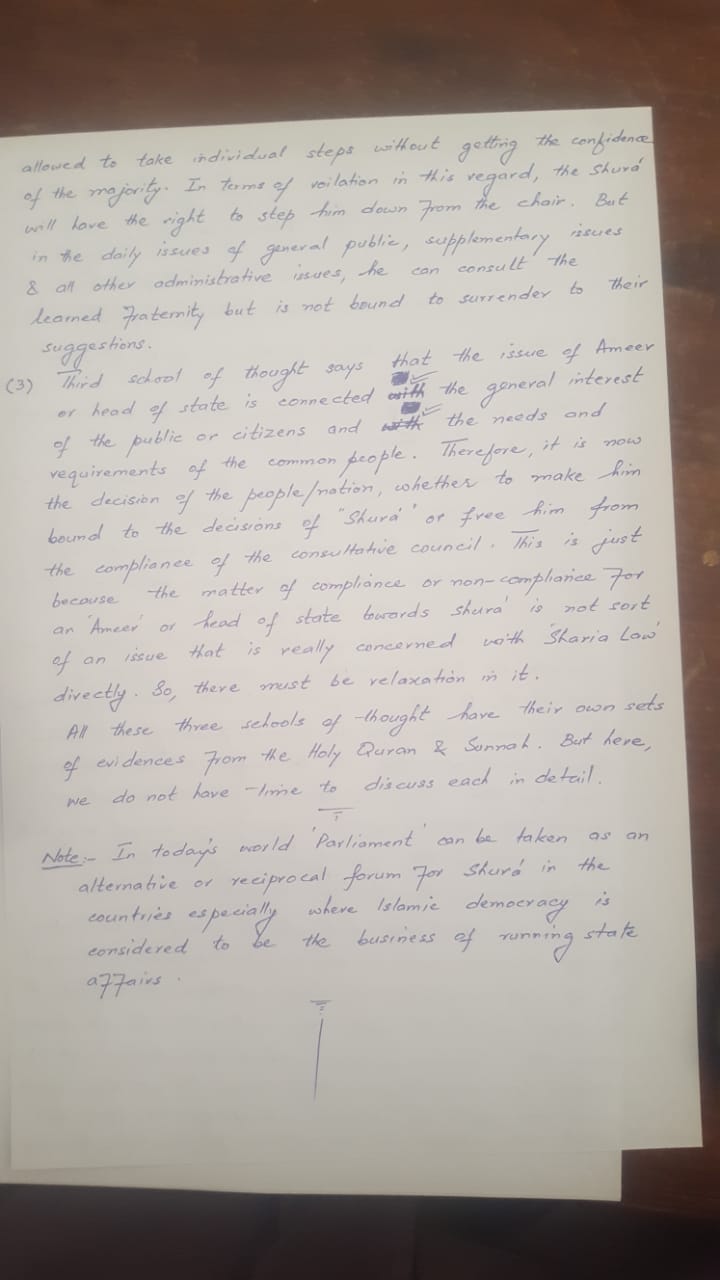 allowed to take individual steps without getting the confidence
of the majority. In terms of voilation in this regard, the Shurá
will have the right to step him down from the chair. But
in the daily issues of general public, supplementary issues
& all other administrative issues, he can consult the
learned fraternity but is not bound to surrender to their
suggestions.
(3) Third school of thought says that the issue of Ameer
or head of state is connected with the general interest
of the public or citizens and with the needs and
requirements of the common people. Therefore, it is now
the decision of the people/nation, whether to make him
bound to the decisions of "Shurá" or free him from
the compliance of the consultative council. This is just
because the matter of compliance or non-compliance for
an 'Ameer' or head of state towards shurá is not sort
of an issue that is really concerned with 'Sharia Law'
directly. So, there must be relaxation in it.
All these three schools of thought have their own sets
of evidences from the Holy Quran & Sunnah. But here,
we do not have time to discuss each in detail.
Note:- In today's world 'Parliament' can be taken as an
alternative or reciprocal forum for Shurá in the
countries especially where Islamic democracy is
considered to be the business of running state
affairs.